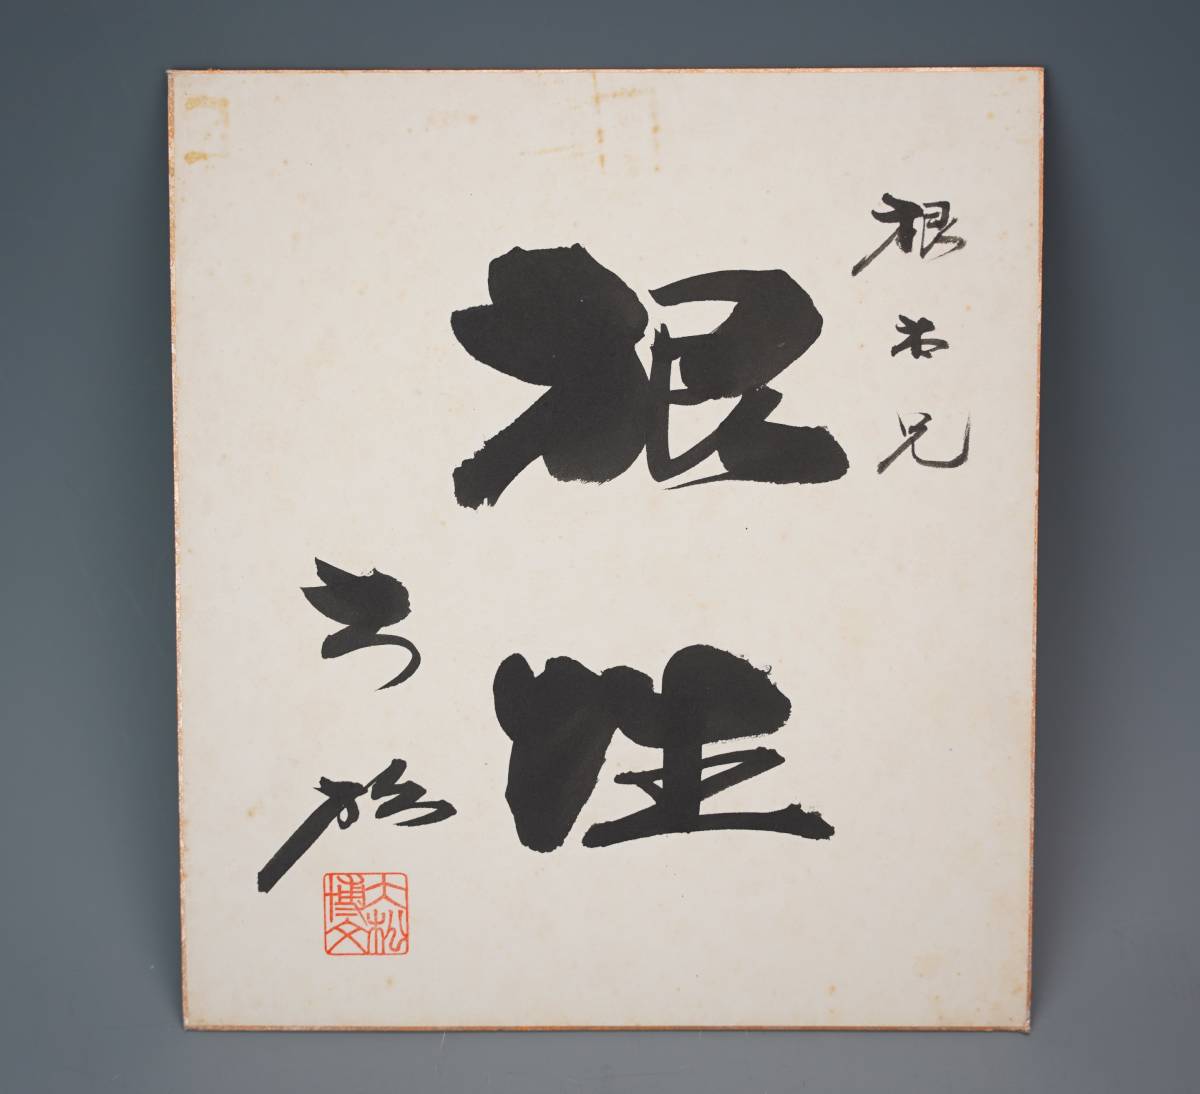 根本兄
根性
大松
大松博文